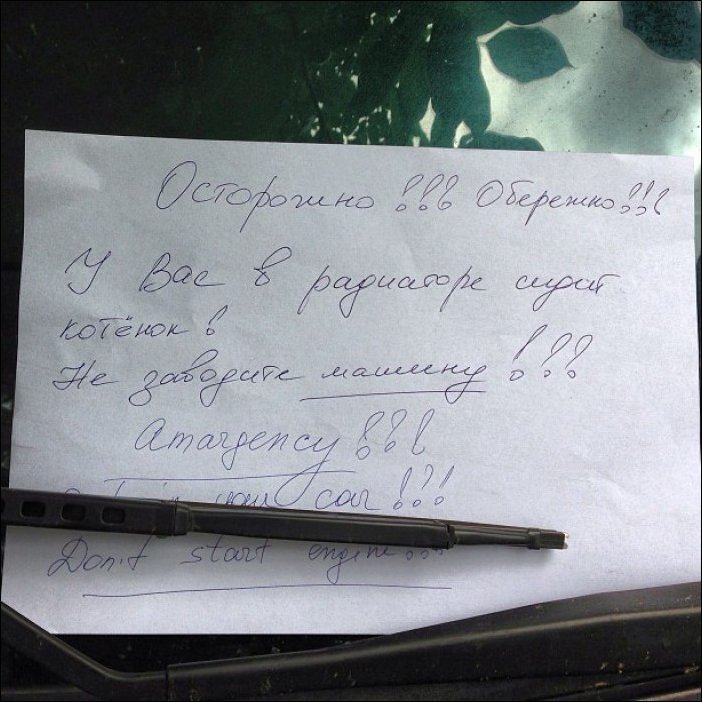 Осторожно!!! Обережно!!!
У Вас в радиаторе сидит
котёнок!
Не заводите машину!!!
Amargency!!!
in your car!!!
Don't start engine!!!